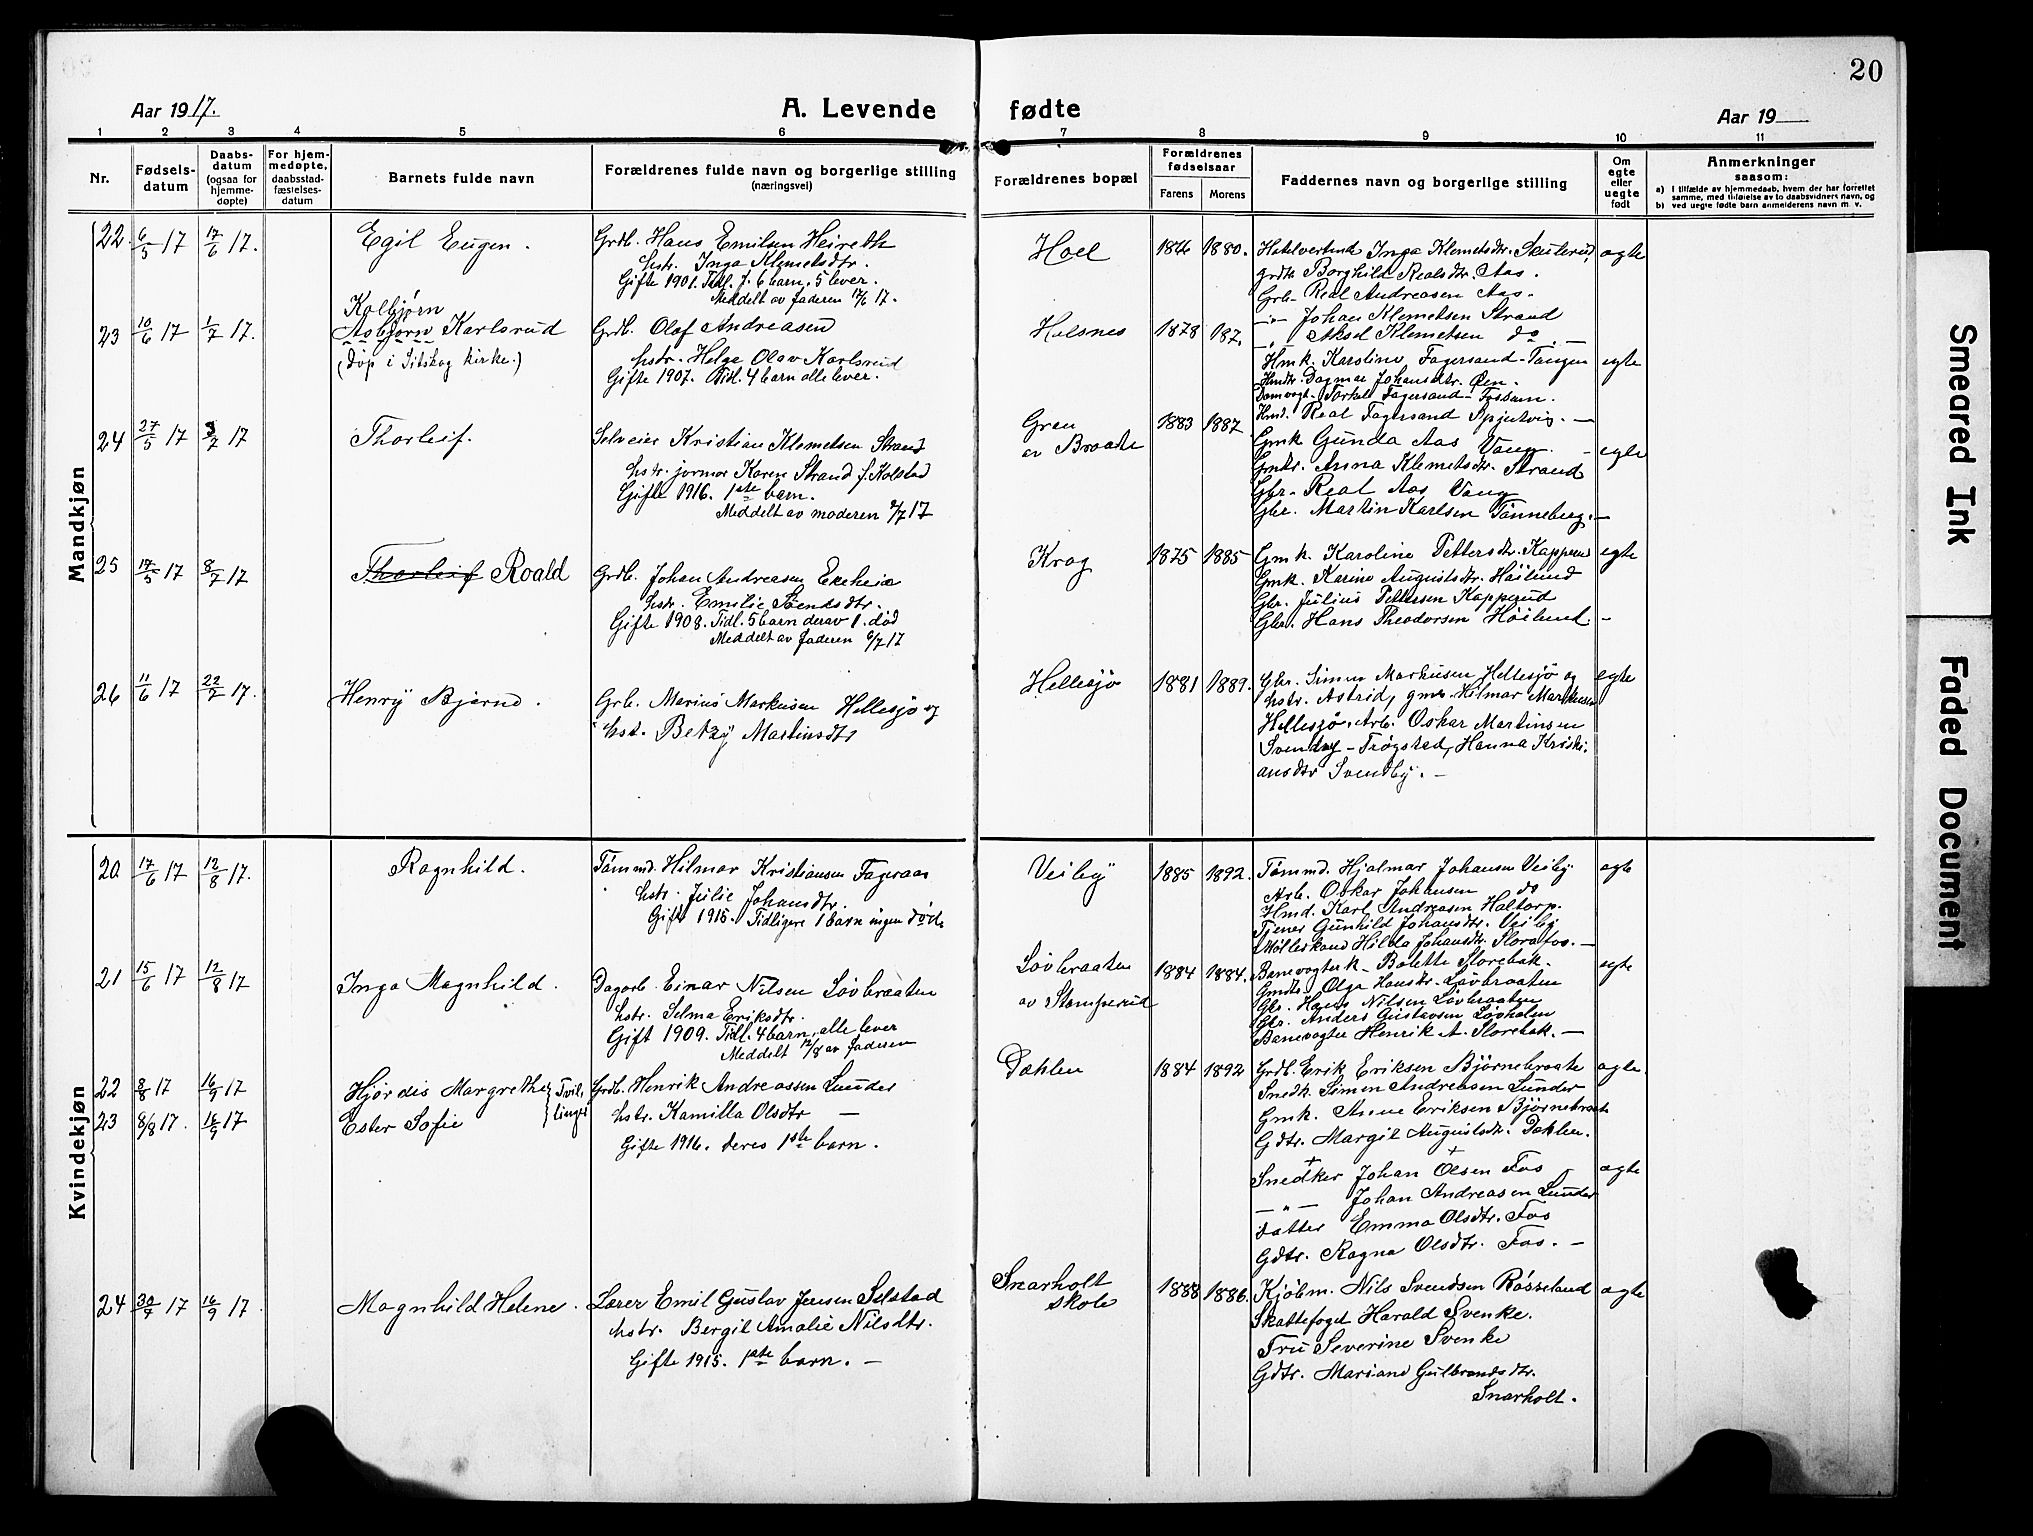 20
Aar 1917.
A. Levende fødte
Aar 19
1 2 3 4 5 6 7 8 9 10 11
Nr.
Fødsels-
datum
Daabs-
datum
(ogsaa for
hjemme-
døpte)
For hjem-
medøpte,
daabsstad-
fæstelses-
datum
Barnets fulde navn
Forældrenes fulde navn og borgerlige stilling
(næringsvei)
Forældrenes bopæl
Forældrenes
fødselsaar
Farens Morens
Faddernes navn og borgerlige stilling
Om
egte
eller
uegte
født
Anmerkninger
saasom:
a) I tilfælde av hjemmedaab, hvem der har forrettet
samme, med tilføielse av to daabsvidners navn, og
b) ved uegte fødte barn anmelderens navn m. v.
Mandkjøn
22 6/5 17 17/6 17. Egil Eugen.
Grdb. Hans Emilsen Heireth
hstr. Inga Klemetsdtr.
Gifte 1901. Tidl. f. 6 barn, 5 lever.
Meddelt av faderen 17/6 17.
Hoel 1876 1880.
Hotelvertind Inga Klemetsdtr. Skulerud
grdtr Borghild Realsdtr. Aas.
Grb- Real Andreasen Aas.
-"- Johan Klemetsen Strand
-"- Aksel Klemetsen do -
egte
23 10/6 17 1/7 17. Kolbjørn
Asbjørn Karlsrud
(døp i Sitskog kirke.)
Grdb. Olaf Andreasen
hstr. Helga Olav Karlsrud
Gifte 1907. Tidl. 4 barn alle lever.
Holsnes 1878 187.
Hmk. Karoline Fagersand-Tangen
Hmdtr. Dagmar Johansdtr. Øen.
Banevogt. Torkel Fagersand-Fossum.
Hmd. Real Fagersand Spjutvig. -
egte
24 27/5 17 8/7 17 Thorleif.
Selveier Kristian Klemetsen Strand
hstr. jormor Karen Strand f. Kolstad
Gifte 1916. 1ste barn.
Meddelt av moderen 2/7 17
Gren
av Braate
1883 1887
Gmk Gunda Aas Vang. -
Gmdtr. Anna Klemetsdtr. Strand
Gbr. Real Aas Vang
Gbr. Martin Karlsen Tønneberg. -
egte
25 17/5 17 8/7 17 Thorleif Roald
Grdb. Johan Andreasen Ekeheia
hstr. Emilie Svendsdtr.
Gifte 1908. Tidl. 5 barn derav 1. død
Meddelt av faderen 6/7 17
Krog 1875 1885
Gmk. Karoline Pettersdtr. Kapperud
Gmk. Karine Augustsdtr. Høilund
Gbr. Julius Pettersen Kapperud
Gbr. Hans Theodorsen Høilund. -
egte
26 11/6 17 22/7 17. Henry Bjerne.
Grb. Marius Markusen Hellesjø og
hst. Betzy Martinsdtr
Hellesjø 1881 1889.
Gbr. Simen Markusen Hellesjø og
hstr. Astrid, gmr. Hilmar Markusen
Hellesjø. Arb. Oskar Martinsen
Svenby - Trøgstad, Hanna Kristi-
ansdtr Svendby. -
egte
Kvindekjøn
20 17/6 17 12/8 17. Ragnhild.
Tømmd. Hilmar Kristiansen Fageraas
hstr. Julie Johansdtr.
Gift 1915. Tidligere 1 barn ingen døde
Veiby 1885 1892.
Tømmd. Hjalmar Johansen Veiby
Arb. Oskar Johansen do
Hmd. Karl Andreasen Haltorp.
Tjener Gunhild Johansdtr. Veiby
Møllerkone Hilda Johansdtr. Storafos. -
egte
21 15/6 17 12/8 17 Inga Magnhild.
Dagarb. Einar Nilsen Løvbraaten
hstr. Selma Eriksdtr.
Gift 1909. Tidl. 4 barn, alle lever
Meddelt 12/8 av faderen
Løvbraaten
av Stomperud
1884 1884.
Banevogterk- Bolette Storebak.
Gmdtr. Olga Hansdtr. Løvbraaten
Gbr. Hans Nilsen Løvbraaten
Gbr. Anders Gustavsen Løvholen
Banevogter Henrik A. Storebak. -
egte
22 8/8 17 16/9 17 Hjørdis Margrethe
23 8/8 17. 16/9 17 Ester Sofie
} Tvil-
linger
Grdb. Henrik Andreassen Lunder
hstr. Kamilla Olsdtr -
Gifte 1916. deres 1ste barn.
Dæhlen 1884 1892
Grdb. Erik Eriksen Bjørnebraate
Snedk. Simen Andreasen Lunder
Gmk. Anne Eriksen Bjørnebraate
Gdtr. Margit Augustsdtr. Dæhlen.
egte
Snedker Johan Olsen Fos
-"- Johan Andreasen Lunder
datter Emma Olsdtr. Fos
Gdtr. Ragna Olsdtr. Fos. -
egte
24 30/7 17 16/9 17 Magnhild Helene.
Lærer Emil Gustav Jensen Selstad
hstr. Bergit Amalie Nilsdtr.
Gifte 1915. 1ste barn. -
Snarholt
skole
1888 1886.
Kjøbm. Nils Svendsen Røsseland
Skattefoged Harald Svenke.
Fru Severine Svenke
Gdtr. Mariane Gulbrandsdtr.
Snarholt.
egte
Smeared Ink
Faded Document